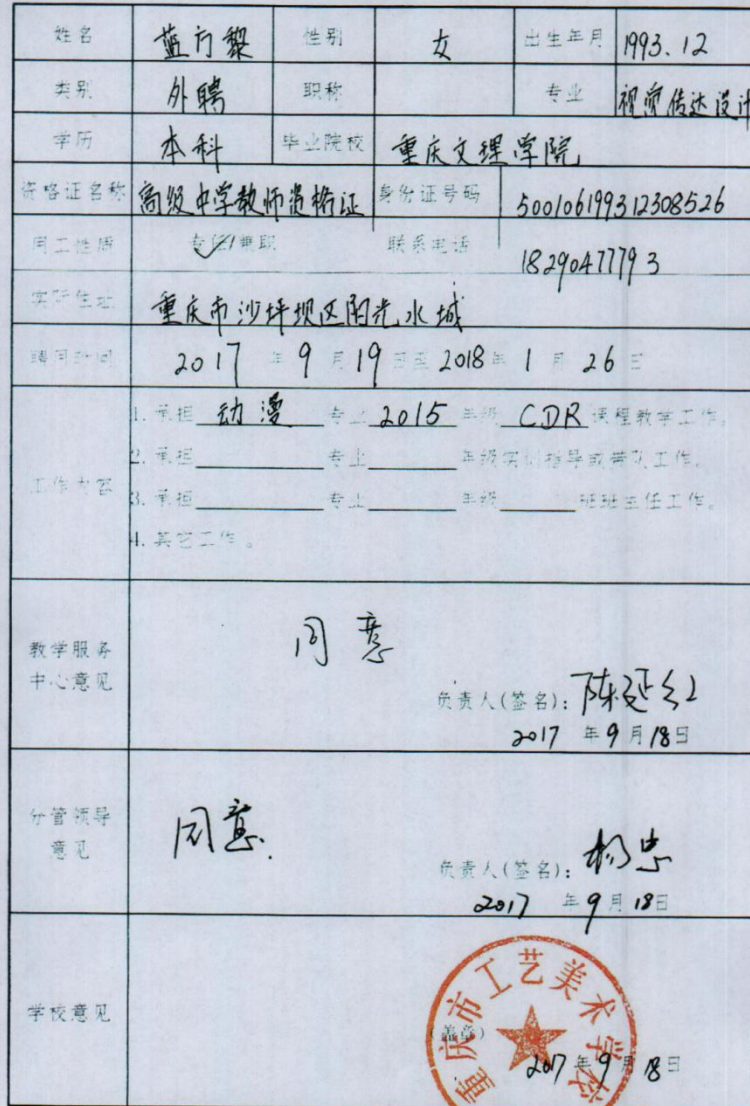 姓名 蓝方黎 性别 女 出生年月 1993.12
类别 外聘 职称 专业 视觉传达设计
学历 本科 毕业院校 重庆文理学院
资格证名称 高级中学教师资格证 身份证号码 500106199312308526
用工性质 专任/兼职 联系电话 18290477793
实际住址 重庆市沙坪坝区阳光水城
聘用时间 2017 年 9 月 19 日至 2018 年 1 月 26 日
工作内容
1. 承担 动漫 专业 2015 年级 CDR 课程教学工作。
2. 承担 专业 年级实训指导或带队工作。
3. 承担 专业 年级 班班主任工作。
4. 其它工作。
教学服务中心意见
同意
负责人(签名): 陈延红
2017 年 9 月 18 日
分管领导意见
同意.
负责人(签名): 杨忠
2017 年 9 月 18 日
学校意见
重庆市工艺美术学校
(盖章)
2017 年 9 月 18 日